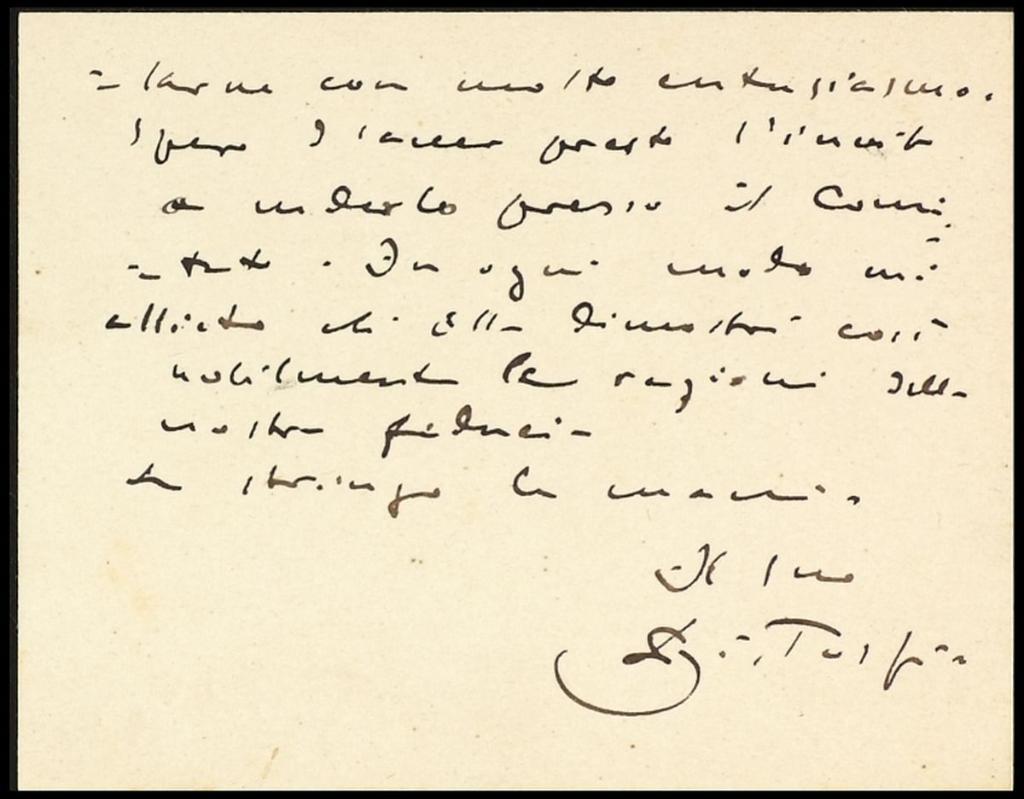 -larne con molto entusiasmo.
Spero d'aver presto l'invito
a vederlo presso il Comi
-tato. In ogni modo mi
allieta che Ella dimostri così
nobilmente le ragioni della
nostra fiducia
Le stringo la mano.
Il suo